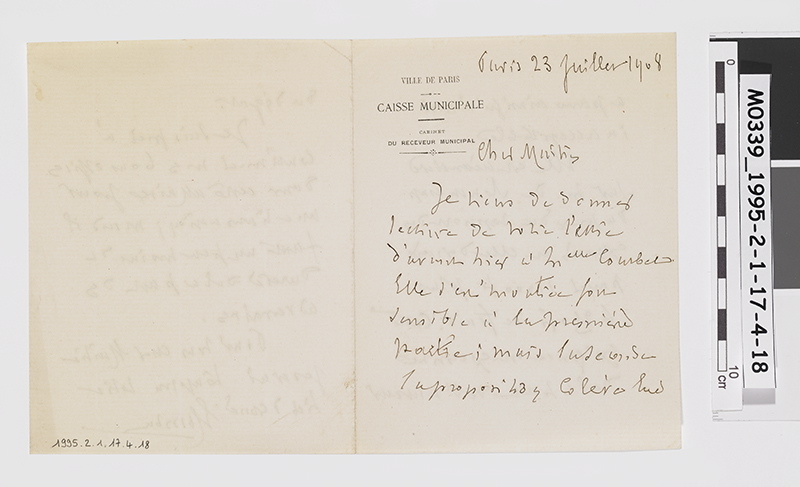 Paris 23 Juillet 1908
VILLE DE PARIS
CAISSE MUNICIPALE
CABINET
DU RECEVEUR MUNICIPAL
Cher
Je viens de donner
lecture de votre lettre
d'avant hier à Melle Courbet
Elle s'est montrée fort
sensible à la première
partie; mais la seconde
la proposition
1995.2.1.17.4.18
M0339_1995-2-1-17-4-18
0
10
cm